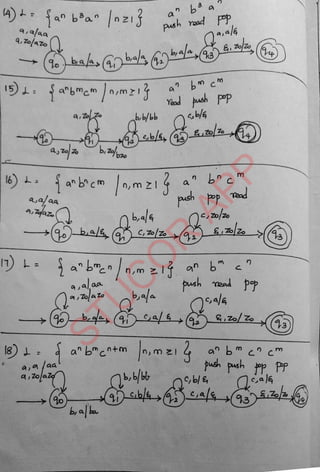 14) L = { aⁿ b³ aⁿ / n ≥ 1 } aⁿ b³ aⁿ
push read pop
a, a/aa
a, z0/az0
a, a/ε
q0 b, a/a q1 b, a/a q2 b, a/a q3 ε, z0/z0 q4
15) L = { aⁿ bᵐ cᵐ / n, m ≥ 1 } aⁿ bᵐ cᵐ
read push pop
a, z0/z0 b, b/bb c, b/ε
q0 a, z0/z0 q1 b, z0/bz0 q2 c, b/ε q3 ε, z0/z0 q4
16) L = { aⁿ bⁿ cᵐ / n, m ≥ 1 } aⁿ bⁿ cᵐ
push pop read
a, a/aa
a, z0/az0 b, a/ε c, z0/z0
q0 b, a/ε q1 c, z0/z0 q2 ε, z0/z0 q3
17) L = { aⁿ bᵐ cⁿ / n, m ≥ 1 } aⁿ bᵐ cⁿ
push read pop
a, a/aa
a, z0/az0 b, a/a c, a/ε
q0 b, a/a q1 c, a/ε q2 ε, z0/z0 q3
18) L = { aⁿ bᵐ cⁿ⁺ᵐ / n, m ≥ 1 } aⁿ bᵐ cⁿ cᵐ
push push pop pop
a, a/aa
a, z0/az0 b, b/bb c, b/ε c, a/ε
q0 b, a/ba q1 c, b/ε q2 c, a/ε q3 ε, z0/z0
STUCOR APP